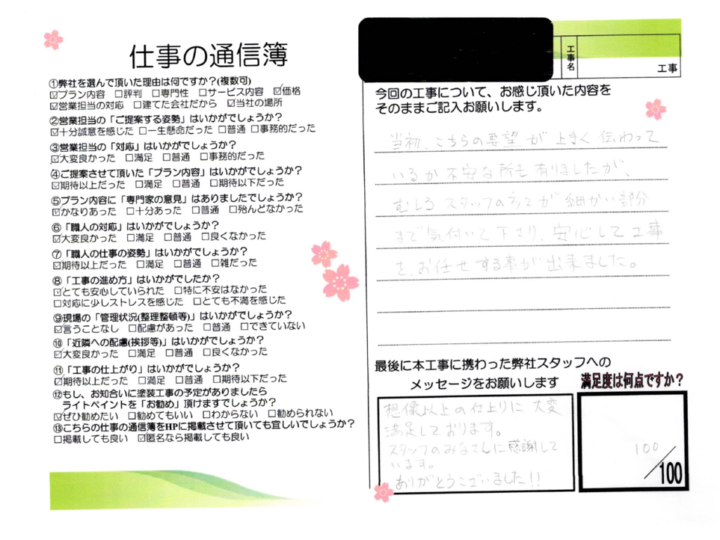 仕事の通信簿
①弊社を選んで頂いた理由は何ですか?(複数可)
☑プラン内容 □評判 □専門性 □サービス内容 ☑価格
☑営業担当の対応 □建てた会社だから ☑当社の場所
②営業担当の「ご提案する姿勢」はいかがでしょうか?
☑十分誠意を感じた □一生懸命だった □普通 □事務的だった
③営業担当の「対応」はいかがでしょうか?
☑大変良かった □満足 □普通 □事務的だった
④ご提案させて頂いた「プラン内容」はいかがでしょうか?
☑期待以上だった □満足 □普通 □期待以下だった
⑤プラン内容に「専門家の意見」はありましたでしょうか?
☑かなりあった □十分あった □普通 □殆んどなかった
⑥「職人の対応」はいかがでしょうか?
☑大変良かった □満足 □普通 □良くなかった
⑦「職人の仕事の姿勢」はいかがでしょうか?
☑期待以上だった □満足 □普通 □雑だった
⑧「工事の進め方」はいかがでしたか?
☑とても安心していられた □特に不安はなかった
□対応に少しストレスを感じた □とても不満を感じた
⑨現場の「管理状況(整理整頓等)」はいかがでしょうか?
☑言うことなし □配慮があった □普通 □できていない
⑩「近隣への配慮(挨拶等)」はいかがでしょうか?
☑大変良かった □満足 □普通 □良くなかった
⑪「工事の仕上がり」はいかがでしょうか?
☑期待以上だった □満足 □普通 □期待以下だった
⑫もし、お知合いに塗装工事の予定がありましたら
ライトペイントを「お勧め」頂けますでしょうか?
☑ぜひ勧めたい □勧めてもいい □わからない □勧められない
⑬こちらの仕事の通信簿をHPに掲載させて頂いても宜しいでしょうか?
□掲載しても良い ☑匿名なら掲載しても良い
工事名
工事
今回の工事について、お感じ頂いた内容を
そのままご記入お願いします。
当初、こちらの要望が上手く伝わって
いるか不安な所も有りましたが、
むしろスタッフの方てが細かい部分
まで気付いて下さり、安心して工事
を、お任せする事が出来ました。
最後に本工事に携わった弊社スタッフへの
メッセージをお願いします
想像以上の仕上りに大変
満足しております。
スタッフのみなさんに感謝して
います。
ありがとうございました!!
満足度は何点ですか?
100/100